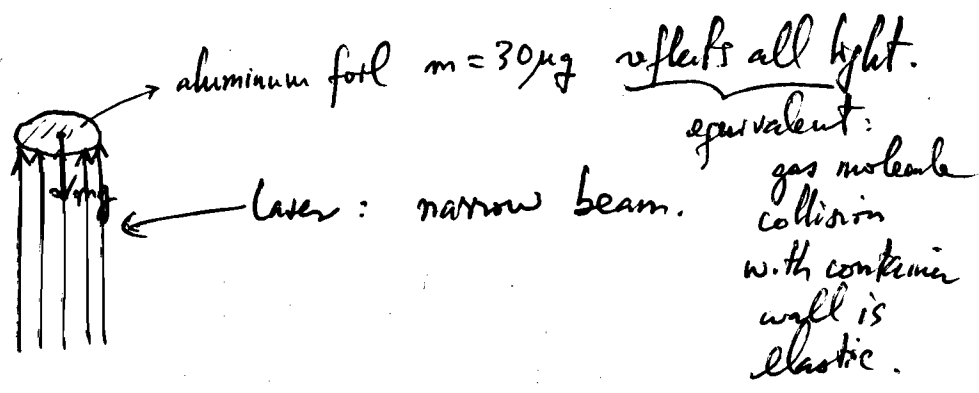 aluminum foil m = 30 μg reflects all light.
equivalent:
gas molecule
collision
with container
wall is
elastic.
mg
laser: narrow beam.